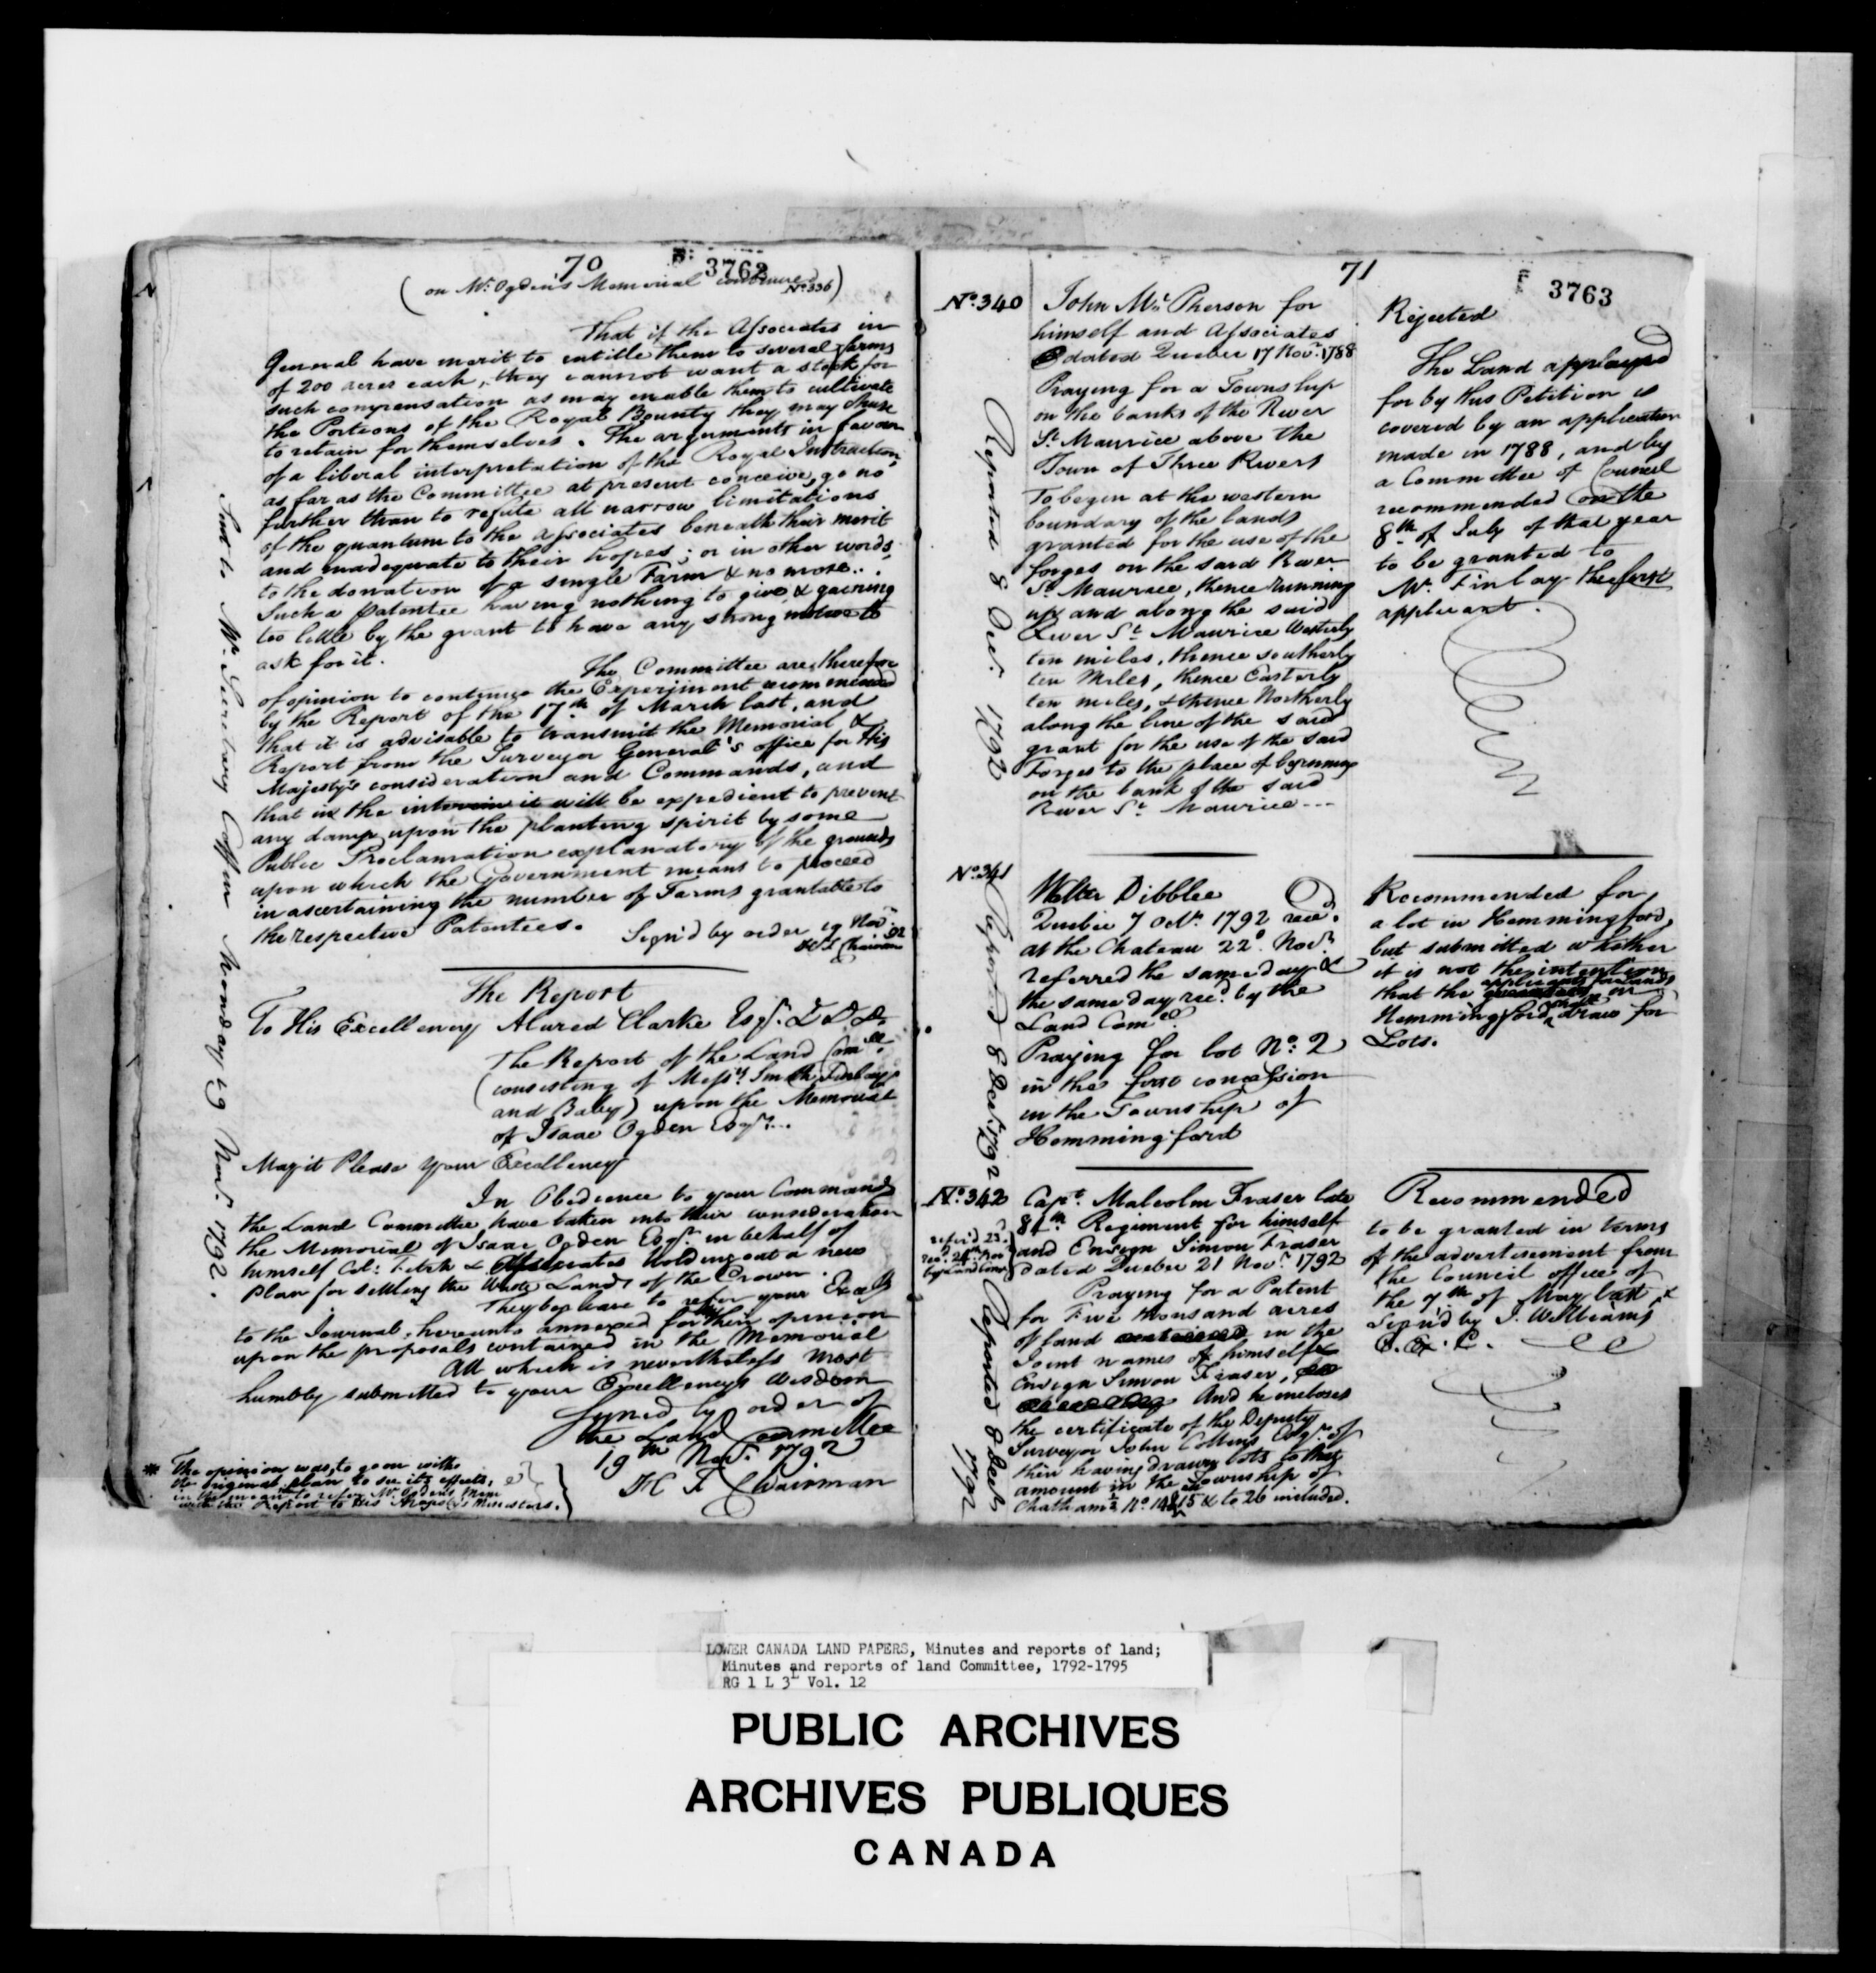 70
3762
(on Mr. Ogden's Memorial continued No. 336)
That if the Associates in
General have merit to entitle them to several farms
of 200 acres each, they cannot want a stock for
such compensation as may enable them to cultivate
the Portions of the Royal Bounty they may chuse
to retain for themselves. The arguments in favour
of a liberal interpretation of the Royal Instructions
as far as the Committee at present conceive, go no
further than to refute all narrow limitations
of the quantum to the Associates beneath their merit
and inadequate to their hopes; or in other words,
to the donation of a single Farm & no more...
Such a patentee having nothing to give, & gaining
too little by the grant to have any strong motive to
ask for it.
The Committee are therefore
of opinion to continue the Experiment recommended
by the Report of the 17th of March last, and
that it is advisable to transmit the Memorial &
Report from the Surveyor General's office for His
Majesty's consideration and Commands, and
that in the interim it will be expedient to prevent
any damp upon the planting spirit by some
Public Proclamation explanatory of the grounds
upon which the Government means to proceed
in ascertaining the number of Farms grantable to
the respective Patentees.
Sign'd by order 19 Nov. 92
Chairman
Sent to Mr. Secretary Coffin Monday 19 Nov. 1792.
The Report
To His Excellency Alured Clarke Esqr.
The Report of the Land Comttee.
(consisting of Messrs. Smith, Finlay
and Baby) upon the Memorial
of Isaac Ogden Esqr...
May it Please your Excellency
In Obedience to your Commands
the Land Committee have taken into their consideration
the Memorial of Isaac Ogden Esqr. in behalf of
himself Col: Fitch & Associates holding out a new
Plan for settling the Waste Lands of the Crown.
They beg leave to refer your Excelly
to the Journal, hereunto annexed for their opinion
upon the proposals contained in the Memorial
All which is nevertheless most
humbly submitted to your Excellency's wisdom
Signed by order of
the Land Committee
19th Nov. 1792
Chairman
* The opinion was, to go on with
the original plan to see its effects, &
in the mean to refer Mr. Ogden's Mem
with the Report to His Majesty's Ministers.
71
3763
No. 340
John Mc.Pherson for
himself and Associates
dated Quebec 17 Nov. 1788
Praying for a Township
on the banks of the River
St. Maurice above the
Town of Three Rivers
To begin at the western
boundary of the lands
granted for the use of the
forges on the said River
St. Maurice, thence running
up and along the said
River St. Maurice Westerly
ten miles, thence southerly
ten Miles, thence Easterly
ten miles, & thence Northerly
along the line of the said
grant for the use of the said
Forges to the place of beginning
on the bank of the said
River St. Maurice---
Reported 8 Dec. 1792
Rejected
The Land applayed
for by this Petition is
covered by an application
made in 1788, and by
a Committee of Council
recommended on the
8th of July of that year
to be granted to
Mr. Finlay the first
applicant.
No. 341
Walter Dibblee
Quebec 7 Octr. 1792 recd.
at the Chateau 22d. Novr.
referred the same day &
the same day recd. by the
Land Comee.
Praying for lot No: 2
in the first concession
in the Township of
Hemmingford
Reported 8 Decr. 1792
Recommended for
a lot in Hemmingford,
but submitted whether
it is not the intention
that the applicants for lands in
Hemmingford draw for
Lots.
No. 342
refer'd 23.
rec. 24th Nov
by Land Comee
Capt. Malcolm Fraser late
84th Regiment for himself
and Ensign Simon Fraser
dated Quebec 21 Nov. 1792
Praying for a Patent
for Five thousand acres
of land in the
Joint names of himself &
Ensign Simon Fraser,
And he incloses
the certificate of the Deputy
Surveyor John Collins Esqr. of
their having drawn lots to that
amount in the Township of
Chatham No. 14 & 15 & to 26 included.
Reported 8 Decr. 1792
Recommended
to be granted in terms
of the advertisement from
the Council office of
the 7th of May last, &
Sign'd by J. Williams
C. Ex. C.
LOWER CANADA LAND PAPERS, Minutes and reports of land;
Minutes and reports of land Committee, 1792-1795
RG 1 L 3L Vol. 12
PUBLIC ARCHIVES
ARCHIVES PUBLIQUES
CANADA